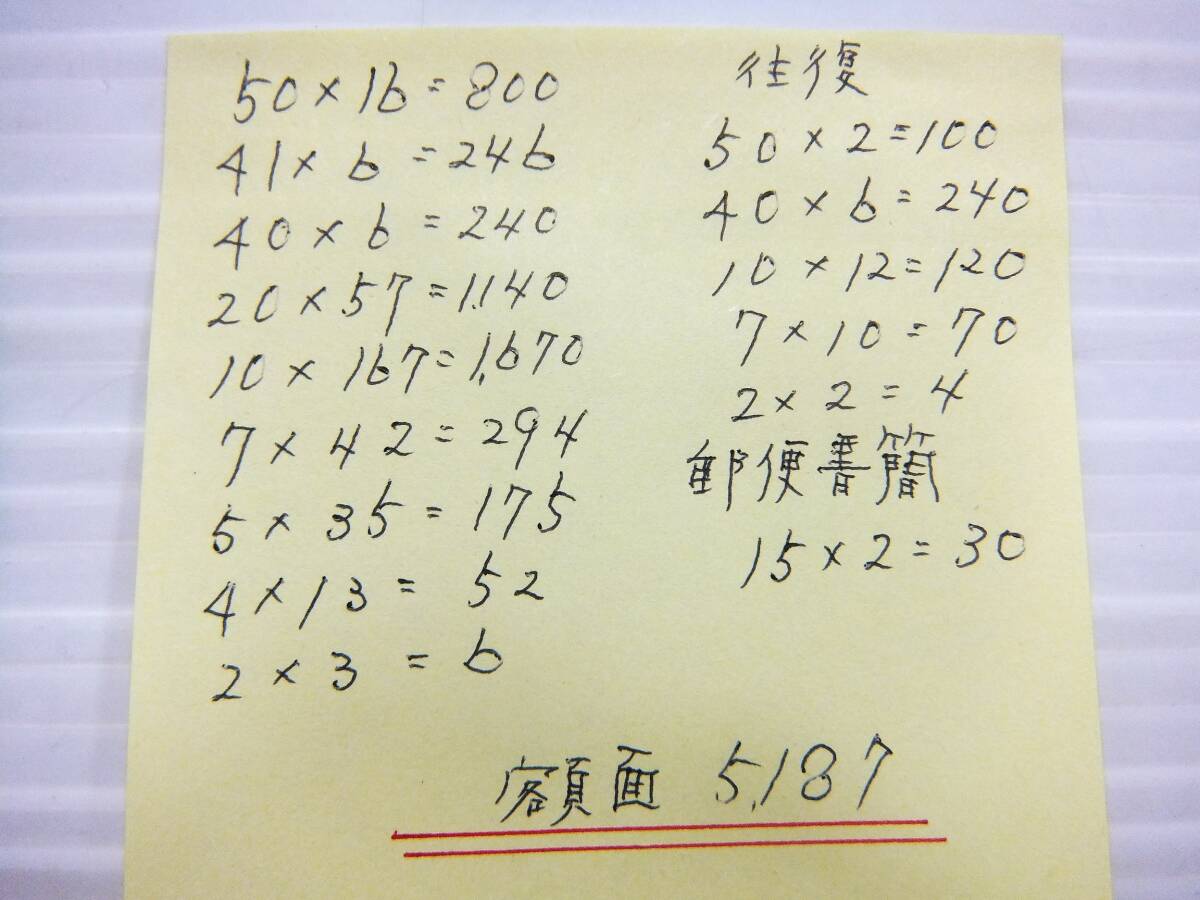 50×16=800
41×6=246
40×6=240
20×57=1,140
10×167=1,670
7×42=294
5×35=175
4×13=52
2×3=6
往復
50×2=100
40×6=240
10×12=120
7×10=70
2×2=4
郵便書簡
15×2=30
額面 5,187